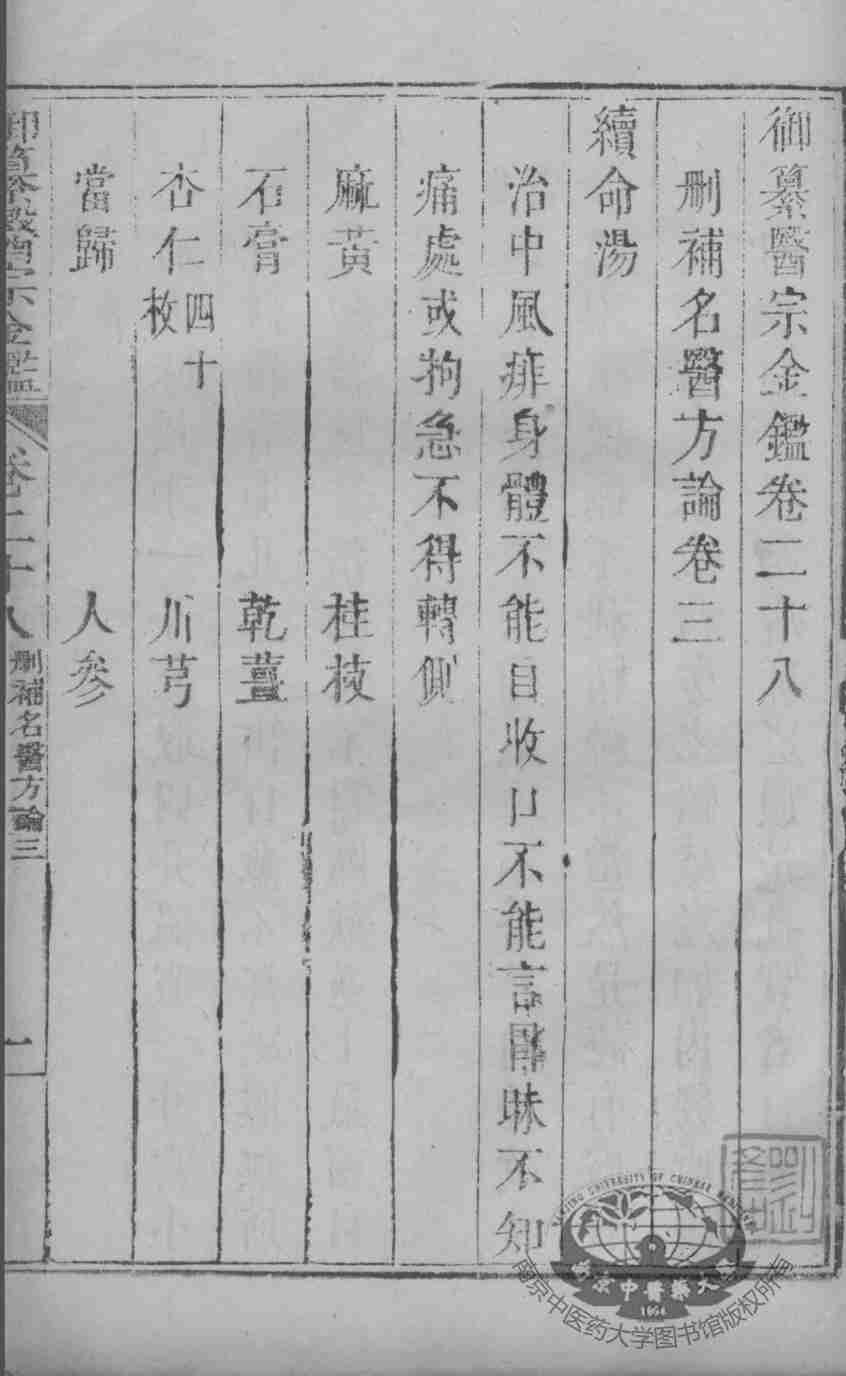 御纂醫宗金鑑卷二十八
刪補名醫方論卷三
續命湯
治中風痱身體不能自收口不能言冒昧不知
痛處或拘急不得轉側
麻黃　桂枝
石膏　乾薑
杏仁四十枚　川芎
當歸　人參
卷二十八　刪補名醫方論三　一
NANJING UNIVERSITY OF CHINESE MEDICINE
南京中醫藥大學
1954
南京中医药大学图书馆版权所有